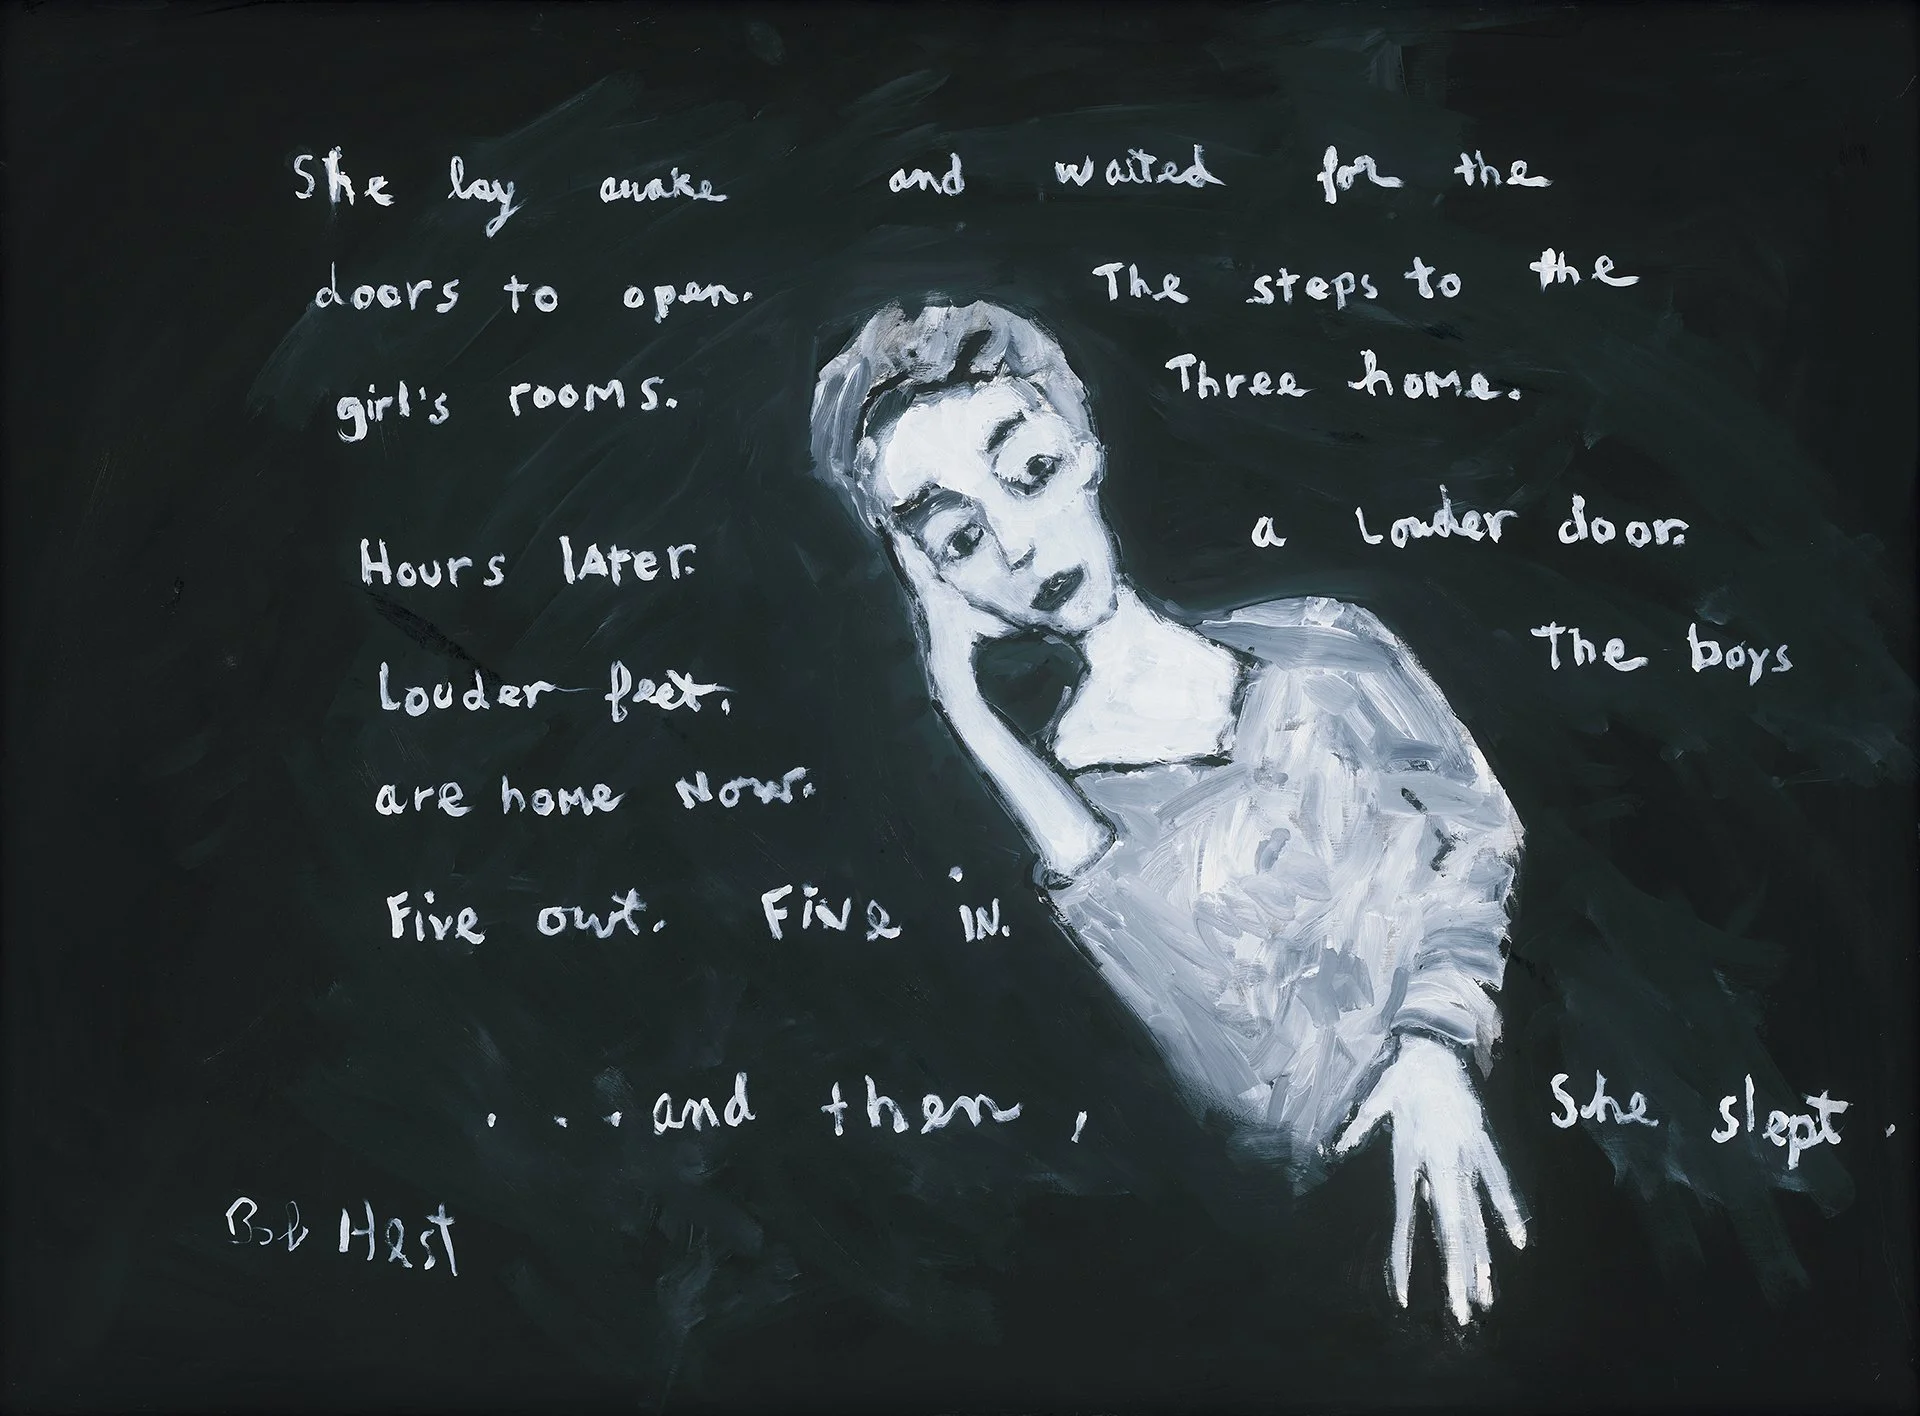 She lay awake and waited for the
doors to open. The steps to the
girl's rooms. Three home.
Hours later. a Louder door.
Louder feet. The boys
are home now.
Five out. Five in.
...and then, She slept.
Bob Hest